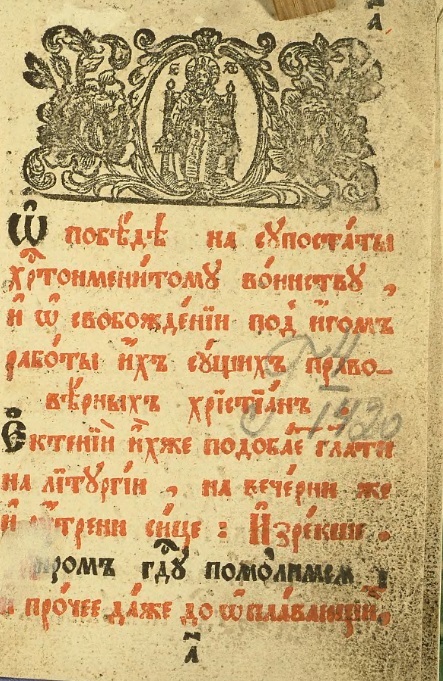 Ѡ побѣ́дѣ на сꙋпоста́ты
хрⷭ҇тоимени́томꙋ во́инствꙋ ,
и҆ ѡ҆ свобожде́нїи под̾ и҆́гомъ
рабо́ты и҆́хъ сꙋ́щихъ право-
вѣ́рныхъ хрїстїа́нъ :
Є҆ктенїи̑ и҆̀хже подоба́етъ гл҃ати
на лїтꙋргі́и , на вече́рни же
и҆ ᲂу҆́трени си́це : И҆зре́кше .
гдⷭ҇ꙋ помо́лимсѧ :
про́чее да́же до ѡ҆ пла́вающихъ ,
а҃